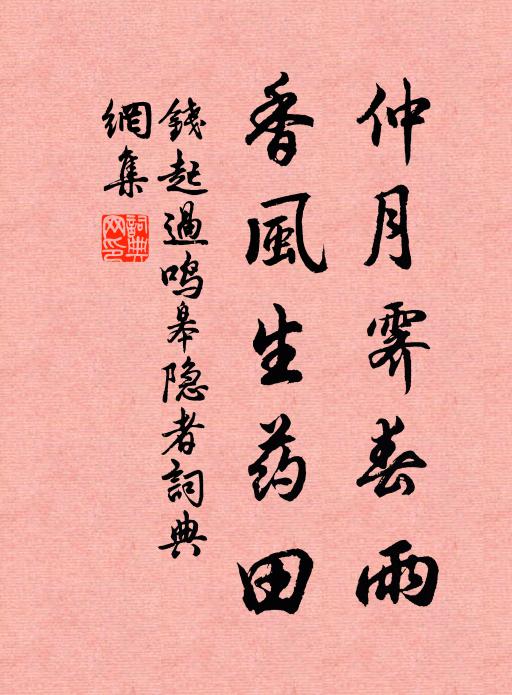 仲月霽春雨
香風生药田
錢起過鸣皋隐者詞典
網集
詞典
网印